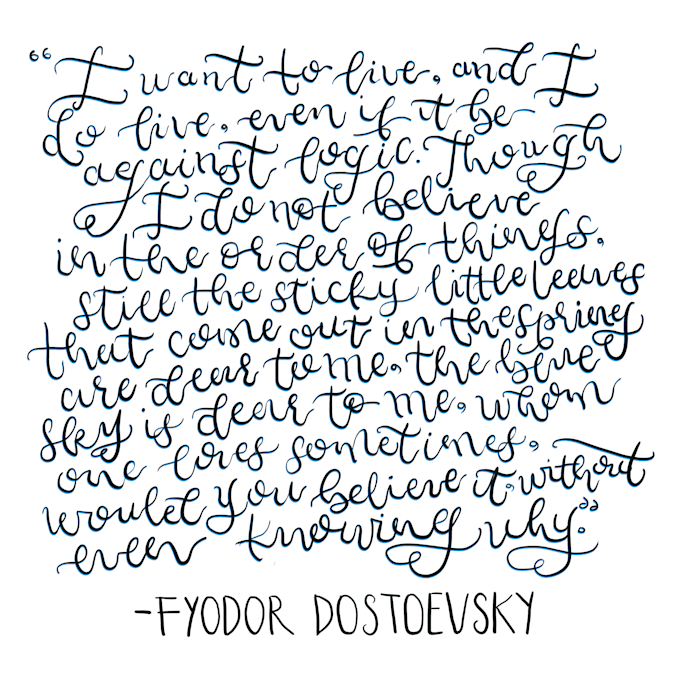 “I want to live, and I
do live, even if it be
against logic. Though
I do not believe
in the order of things,
still the sticky little leaves
that come out in the spring
are dear to me, the blue
sky is dear to me, whom
one loves sometimes,
would you believe it, without
even knowing why.”
-FYODOR DOSTOEVSKY